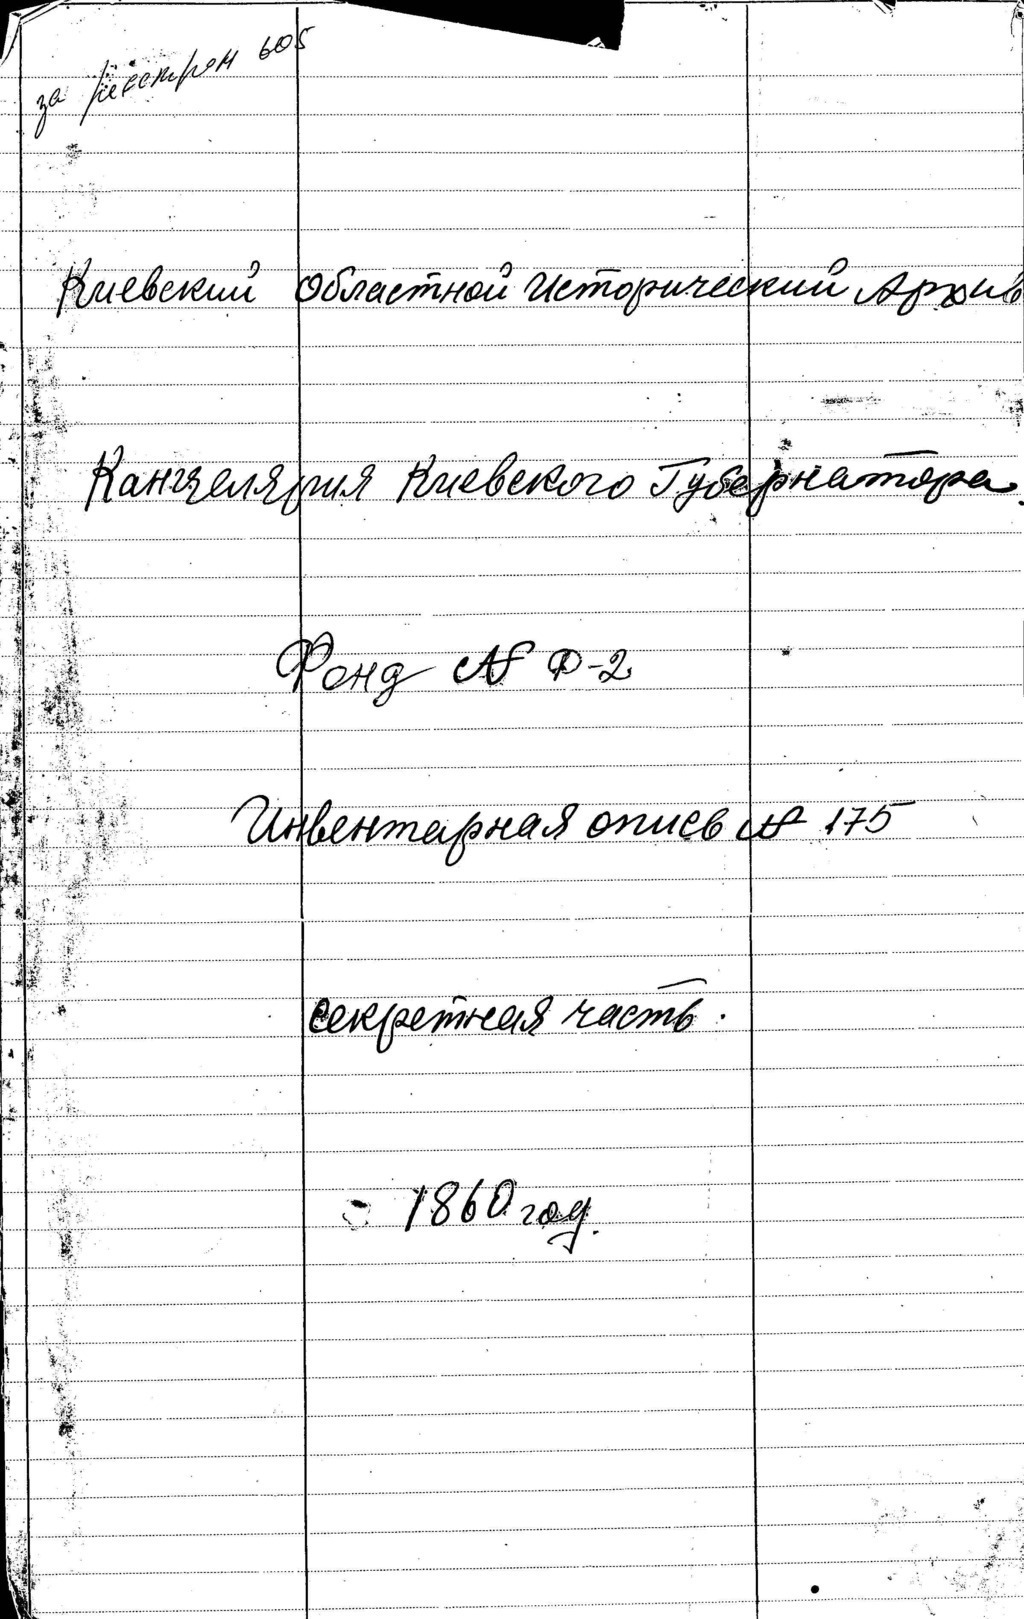 за реєстром 605
Киевский Областной Исторический Архив
Канцелярия Киевского Губернатора.
Фонд № Ф-2
Инвентарная опись № 175
секретная часть.
1860 год.